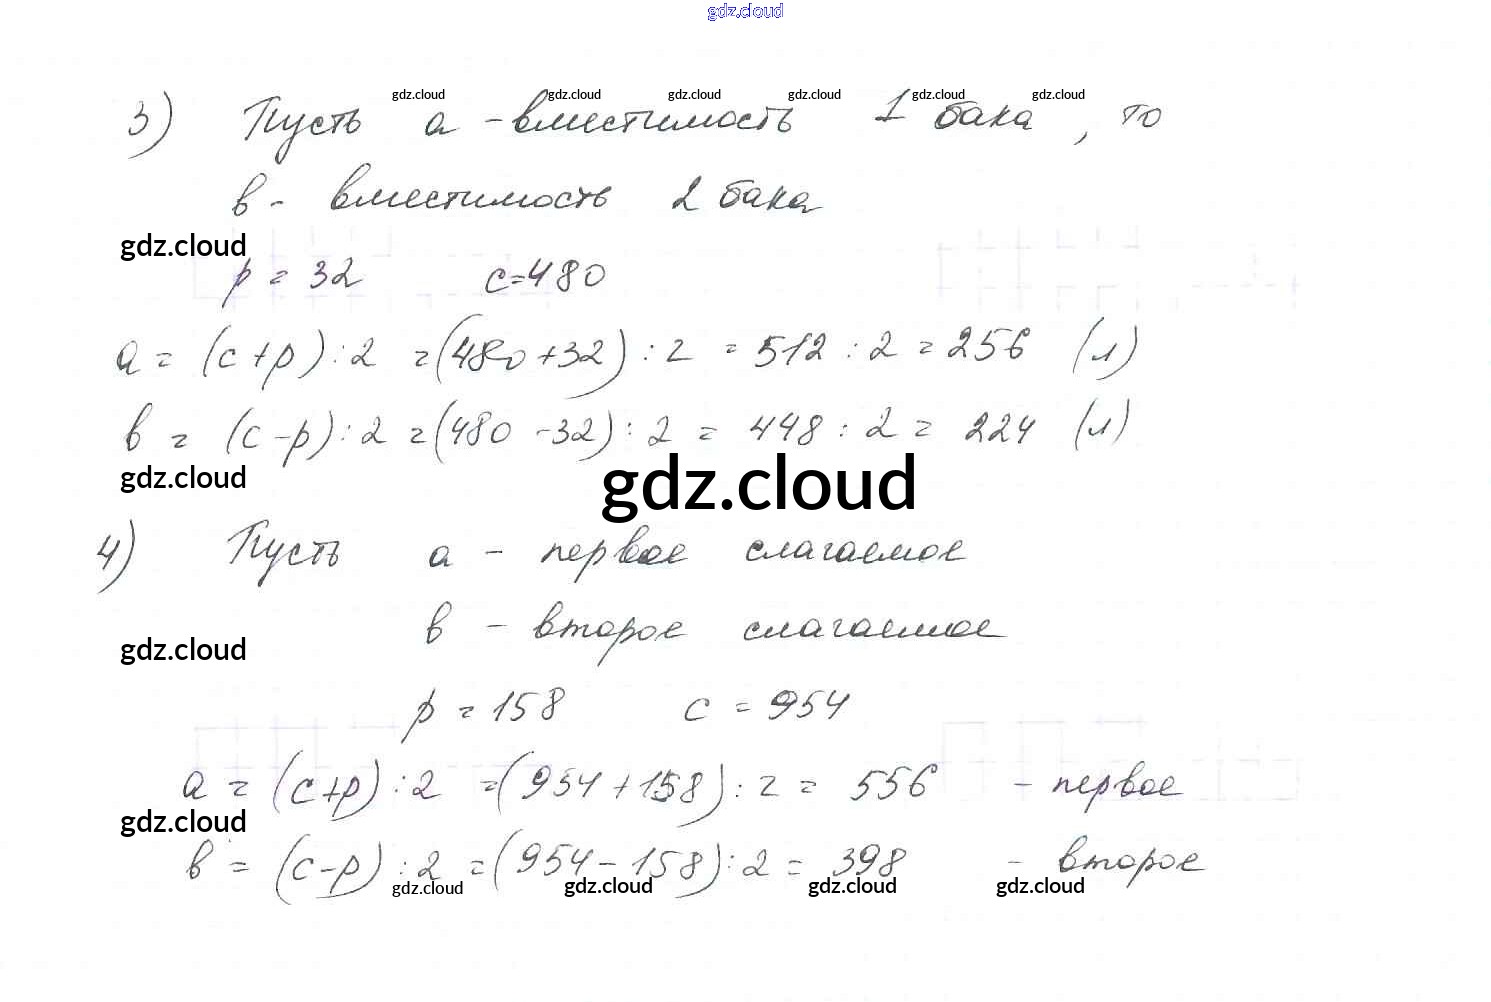 gdz.cloud
gdz.cloud gdz.cloud gdz.cloud gdz.cloud gdz.cloud gdz.cloud
3) Пусть a - вместимость 1 бака, то
в - вместимость 2 бака
gdz.cloud
p = 32 c = 480
a = (c + p) : 2 = (480 + 32) : 2 = 512 : 2 = 256 (л)
в = (c - p) : 2 = (480 - 32) : 2 = 448 : 2 = 224 (л)
gdz.cloud gdz.cloud
4) Пусть a - первое слагаемое
в - второе слагаемое
gdz.cloud
p = 158 c = 954
a = (c + p) : 2 = (954 + 158) : 2 = 556 - первое
gdz.cloud
в = (c - p) : 2 = (954 - 158) : 2 = 398 - второе
gdz.cloud gdz.cloud gdz.cloud gdz.cloud